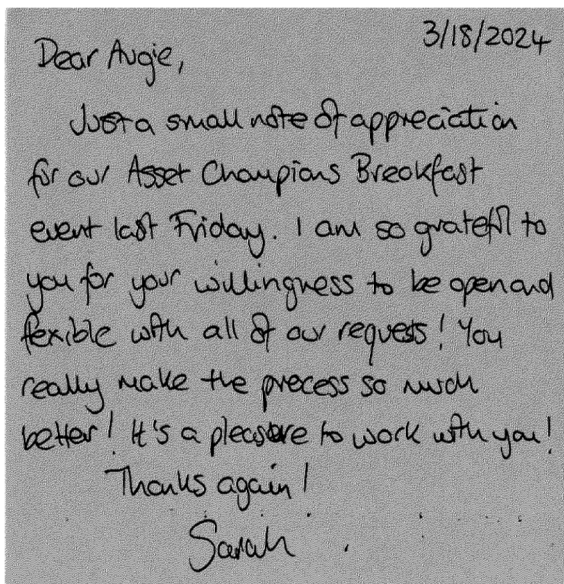 3/18/2024
Dear Augie,
Just a small note of appreciation
for our Asset Champions Breakfast
event last Friday. I am so grateful to
you for your willingness to be open and
flexible with all of our requests! You
really make the process so much
better! It's a pleasure to work with you!
Thanks again!
Sarah